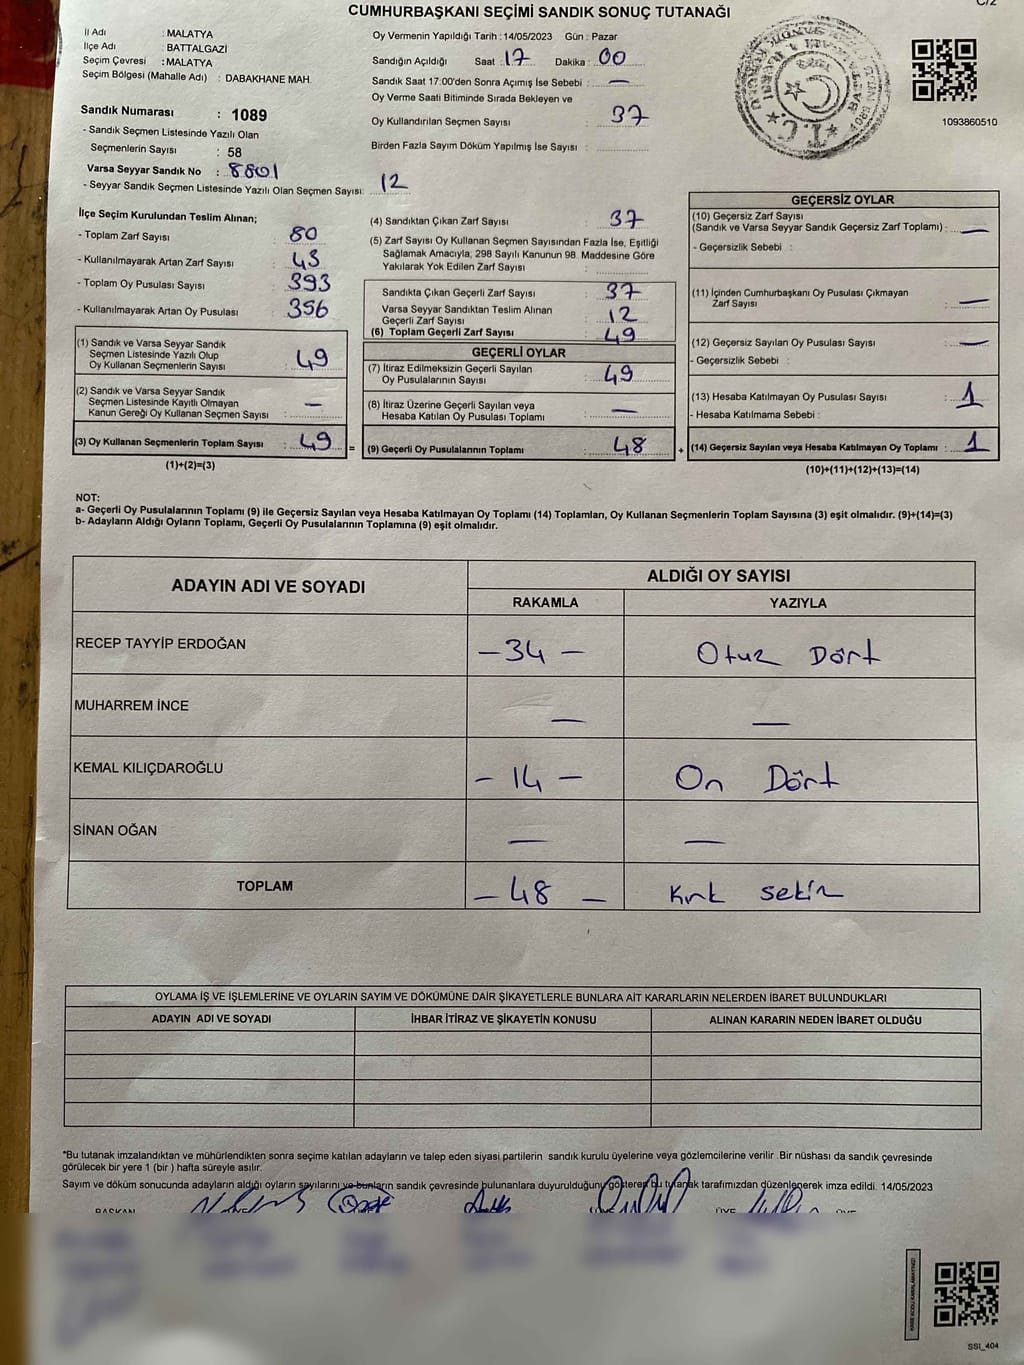 C/2
CUMHURBAŞKANI SEÇİMİ SANDIK SONUÇ TUTANAĞI
İl Adı : MALATYA
İlçe Adı : BATTALGAZİ
Seçim Çevresi : MALATYA
Seçim Bölgesi (Mahalle Adı) : DABAKHANE MAH.
Sandık Numarası : 1089
- Sandık Seçmen Listesinde Yazılı Olan
Seçmenlerin Sayısı : 58
Varsa Seyyar Sandık No : 8801
- Seyyar Sandık Seçmen Listesinde Yazılı Olan Seçmen Sayısı: 12
Oy Vermenin Yapıldığı Tarih : 14/05/2023 Gün : Pazar
Sandığın Açıldığı Saat : 17 Dakika : 00
Sandık Saat 17:00'den Sonra Açımış İse Sebebi : —
Oy Verme Saati Bitiminde Sırada Bekleyen ve
Oy Kullandırılan Seçmen Sayısı : 37
Birden Fazla Sayım Döküm Yapılmış İse Sayısı :
1093860510
İlçe Seçim Kurulundan Teslim Alınan;
- Toplam Zarf Sayısı : 80
- Kullanılmayarak Artan Zarf Sayısı : 43
- Toplam Oy Pusulası Sayısı : 393
- Kullanılmayarak Artan Oy Pusulası : 356
(1) Sandık ve Varsa Seyyar Sandık
Seçmen Listesinde Yazılı Olup
Oy Kullanan Seçmenlerin Sayısı : 49
(2) Sandık ve Varsa Seyyar Sandık
Seçmen Listesinde Kayıtlı Olmayan
Kanun Gereği Oy Kullanan Seçmen Sayısı : —
(3) Oy Kullanan Seçmenlerin Toplam Sayısı : 49 =
(1)+(2)=(3)
(4) Sandıktan Çıkan Zarf Sayısı : 37
(5) Zarf Sayısı Oy Kullanan Seçmen Sayısından Fazla İse, Eşitliği
Sağlamak Amacıyla; 298 Sayılı Kanunun 98. Maddesine Göre
Yakılarak Yok Edilen Zarf Sayısı :
Sandıkta Çıkan Geçerli Zarf Sayısı : 37
Varsa Seyyar Sandıktan Teslim Alınan
Geçerli Zarf Sayısı : 12
(6) Toplam Geçerli Zarf Sayısı : 49
GEÇERLİ OYLAR
(7) İtiraz Edilmeksizin Geçerli Sayılan
Oy Pusulalarının Sayısı : 49
(8) İtiraz Üzerine Geçerli Sayılan veya
Hesaba Katılan Oy Pusulası Toplamı : —
(9) Geçerli Oy Pusulalarının Toplamı : 48 +
GEÇERSİZ OYLAR
(10) Geçersiz Zarf Sayısı
(Sandık ve Varsa Seyyar Sandık Geçersiz Zarf Toplamı) : —
- Geçersizlik Sebebi :
(11) İçinden Cumhurbaşkanı Oy Pusulası Çıkmayan
Zarf Sayısı : —
(12) Geçersiz Sayılan Oy Pusulası Sayısı : —
- Geçersizlik Sebebi :
(13) Hesaba Katılmayan Oy Pusulası Sayısı : 1
- Hesaba Katılmama Sebebi :
(14) Geçersiz Sayılan veya Hesaba Katılmayan Oy Toplamı : 1
(10)+(11)+(12)+(13)=(14)
NOT:
a- Geçerli Oy Pusulalarının Toplamı (9) ile Geçersiz Sayılan veya Hesaba Katılmayan Oy Toplamı (14) Toplamları, Oy Kullanan Seçmenlerin Toplam Sayısına (3) eşit olmalıdır. (9)+(14)=(3)
b- Adayların Aldığı Oyların Toplamı, Geçerli Oy Pusulalarının Toplamına (9) eşit olmalıdır.
ADAYIN ADI VE SOYADI
ALDIĞI OY SAYISI
RAKAMLA YAZIYLA
RECEP TAYYİP ERDOĞAN – 34 – Otuz Dört
MUHARREM İNCE — —
KEMAL KILIÇDAROĞLU – 14 – On Dört
SİNAN OĞAN — —
TOPLAM – 48 – Kırk sekiz
OYLAMA İŞ VE İŞLEMLERİNE VE OYLARIN SAYIM VE DÖKÜMÜNE DAİR ŞİKAYETLERLE BUNLARA AİT KARARLARIN NELERDEN İBARET BULUNDUKLARI
ADAYIN ADI VE SOYADI İHBAR İTİRAZ VE ŞİKAYETİN KONUSU ALINAN KARARIN NEDEN İBARET OLDUĞU
*Bu tutanak imzalandıktan ve mühürlendikten sonra seçime katılan adayların ve talep eden siyasi partilerin sandık kurulu üyelerine veya gözlemcilerine verilir. Bir nüshası da sandık çevresinde
görülecek bir yere 1 (bir ) hafta süreyle asılır.
Sayım ve döküm sonucunda adayların aldığı oyların sayılarını ve bunların sandık çevresinde bulunanlara duyurulduğunu gösteren bu tutanak tarafımızdan düzenlenerek imza edildi. 14/05/2023
BAŞKAN ÜYE ÜYE ÜYE
SSI_404